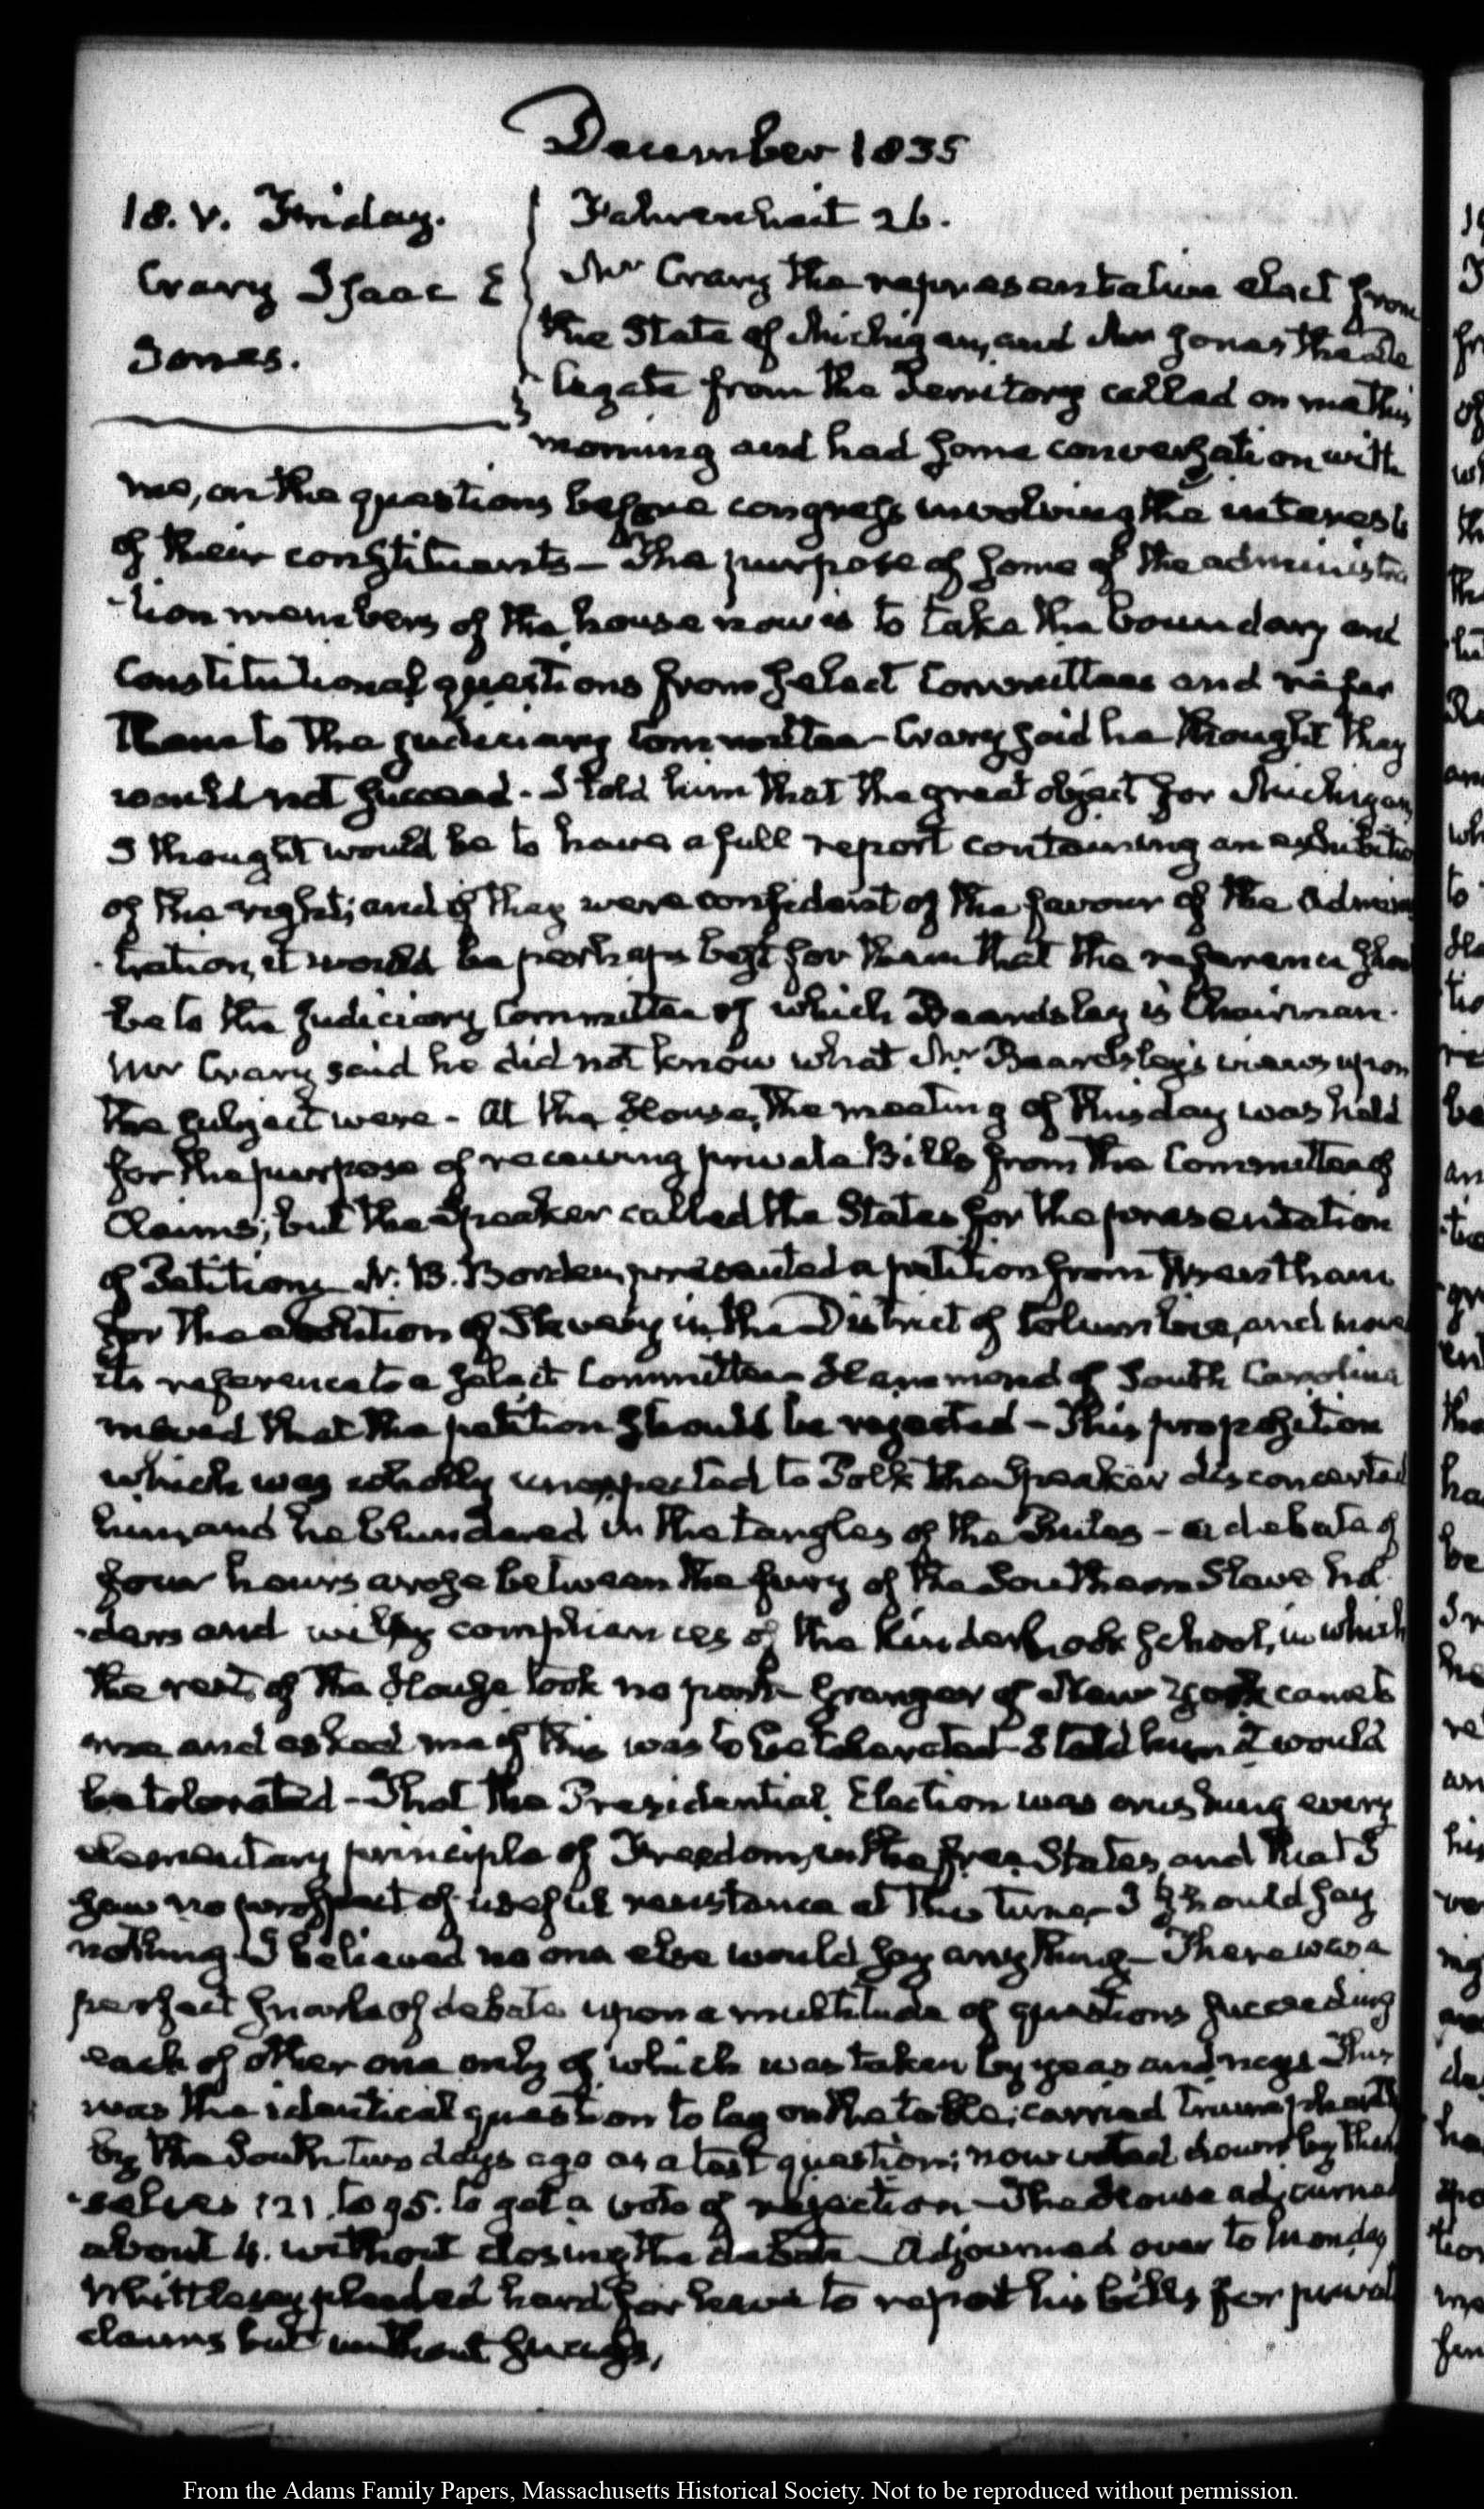 December 1835
18. V. Friday.
Crary Isaac E
Jones.
Fahrenheit 26.
Mr Crary the representative elect from
the State of Michigan, and Mr Jones the de
legate from the Territory called on me this
morning and had some conversation with
me, on the questions before Congress involving the interests
of their constituents — The purpose of some of the administra
-tion members of the house now is to take the boundary and
Constitutional questions from select Committees and refer
them to the judiciary Committee — Crary said he thought they
would not succeed. I told him that the great object for Michigan,
I thought would be to have a full report containing an exhibition
of the right; and if they were confident of the favour of the Admini
-tration, it would be perhaps best for them that the reference shou
be to the Judiciary Committee of which Beardsley is Chairman.
Mr Crary said he did not know what Mr Beardsley's views upon
the subject were - At the House, the meeting of this day was held
for the purpose of receiving private Bills from the Committee of
Claims; but the Speaker called the States for the presentation
of Petitions N. B. Borden, presented a petition from Wrentham
for the abolition of Slavery in the District of Columbia, and move
its reference to a select Committee — Hammond of South Carolina
moved that the petition should be rejected — This proposition
which was wholly unexpected to Polk the Speaker disconcerted
him, and he blundered in the tangles of the Rules — a debate of
four hours arose between the fury of the Southern Slave hol
-ders and wily compliances of the Kinderhook school, in which
the rest of the House took no part — Granger of New York came to
me and asked me if this was to be tolerated — I told him it would
be tolerated — That the Presidential Election was crushing every
elementary principle of Freedom, in the free States, and that I
saw no prospect of useful resistance at this time — I should say
nothing — I believed no one else would say any thing — There was a
perfect snarl of debate upon a multitude of questions succeeding
each of other one only of which was taken by yeas and nays This
was the identical question to lay on the table; carried triumphantly
by the South two days ago as a test question; now voted down by them
-selves 121. to 95. to get a vote of rejection — The House adjourned
about 4. without closing the debate — Adjourned over to Monday
Whittlesey pleaded hard for leave to report his bills for privat
claims but without success,
From the Adams Family Papers, Massachusetts Historical Society. Not to be reproduced without permission.